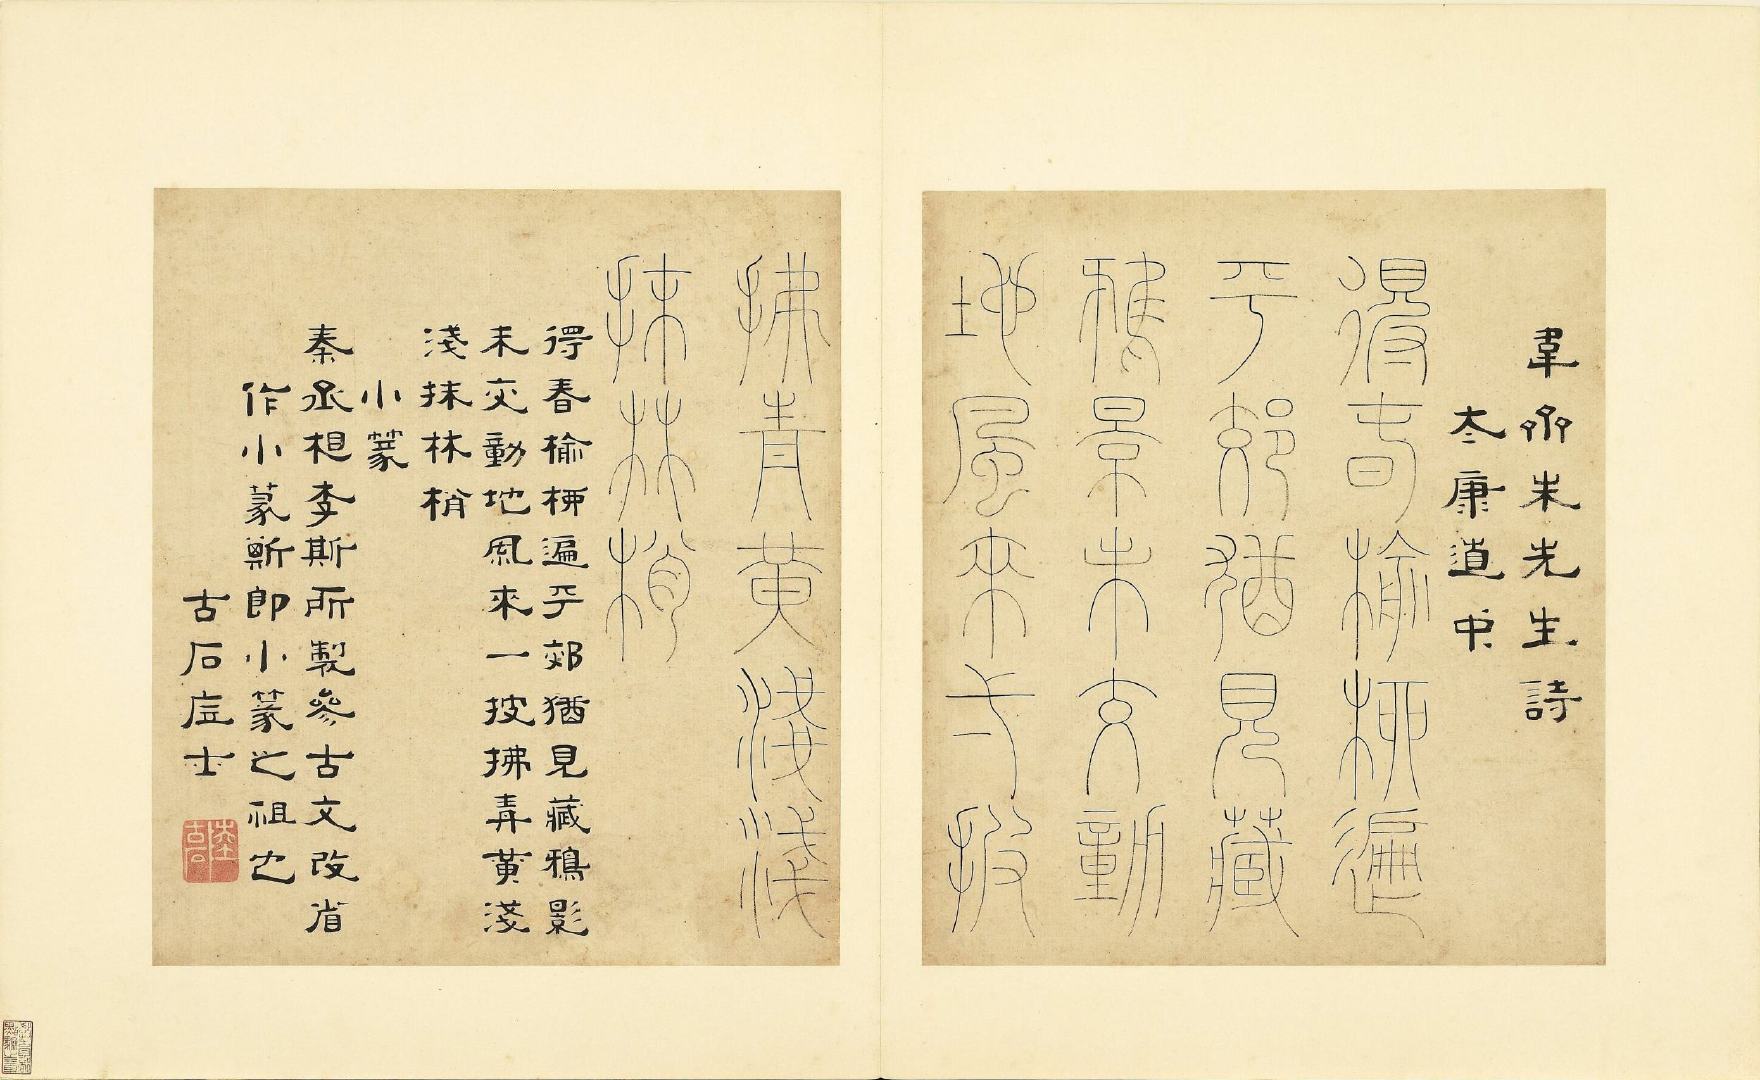 韋齋朱先生詩
太康道中
得旾榆柳遍
平郊猶見藏
鴉景未交動
地風來弌披
拂青黃淺淺
抹林梢
得春榆柳遍平郊猶見藏鴉影
未交動地風來一披拂青黃淺
淺抹林梢
小篆
秦丞相李斯所製參古文改省
作小篆斯即小篆之祖也
古石居士
陸古石